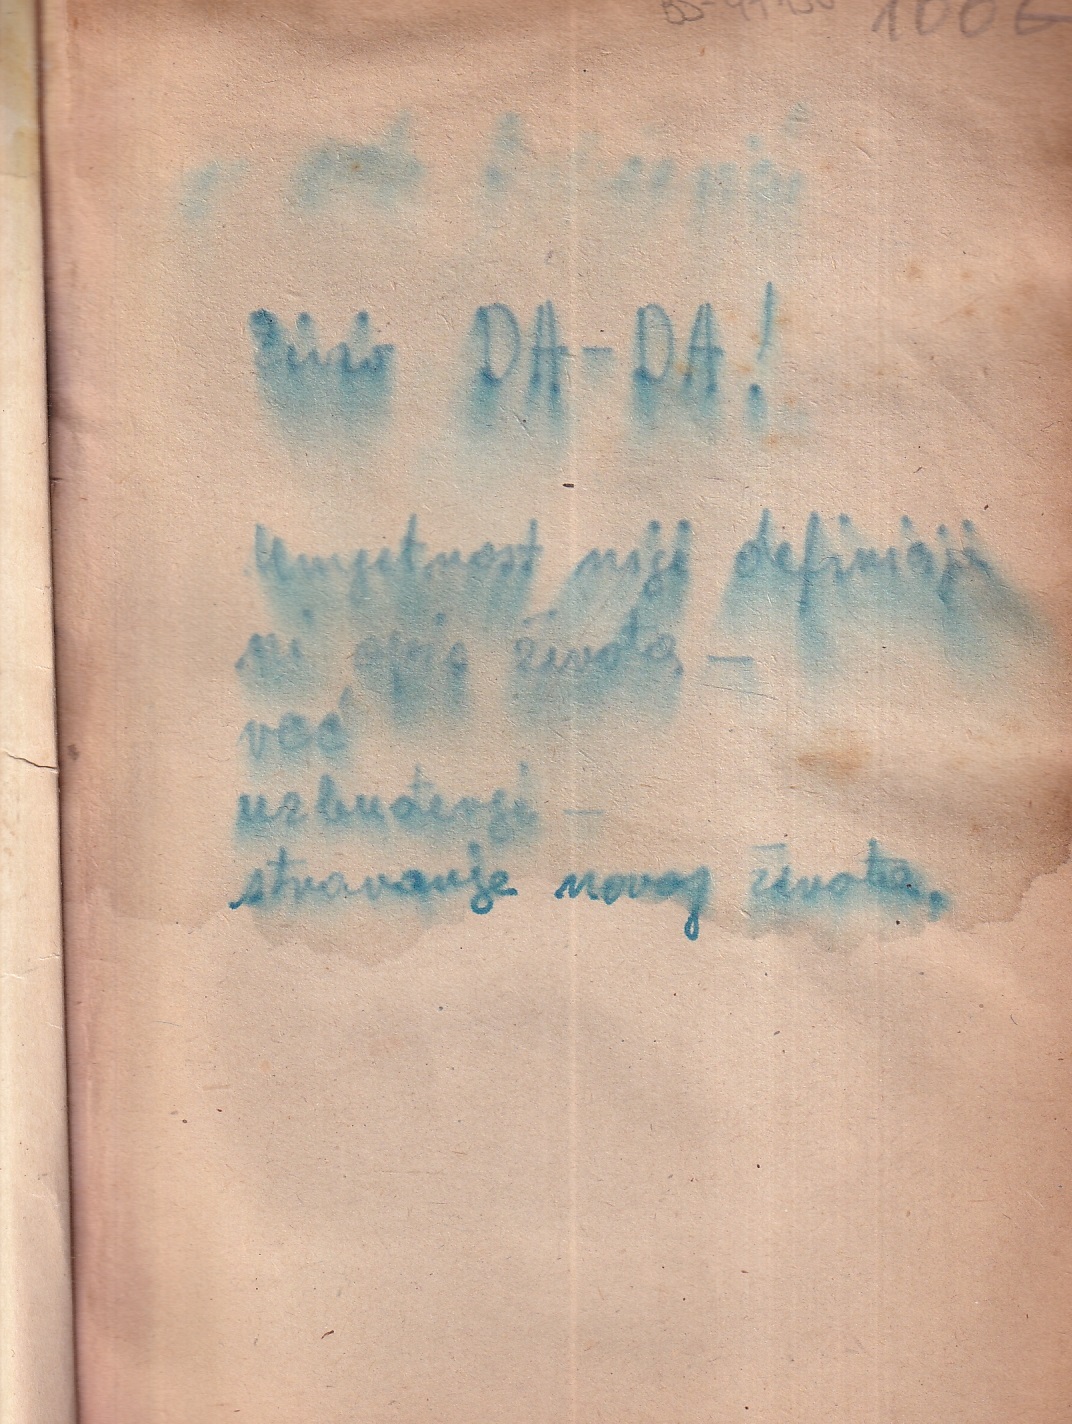 Živio DA-DA!
Umjetnost nije definicija
ni opis života, —
već
uzbuđenje —
stvaranje novog života,